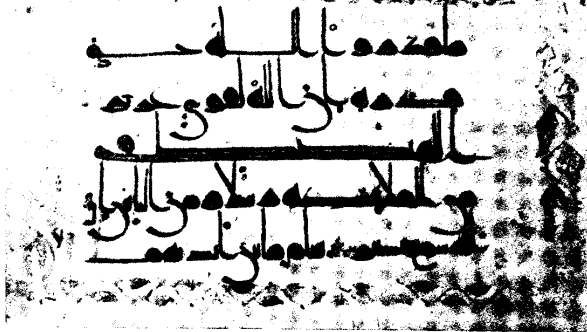 ما قدروا الله حق
قدره ان الله لقوي عزيز
الله يصطفي
من الملائكة رسلا ومن الناس ان
الله سميع بصير يعلم ما بين ايديهم